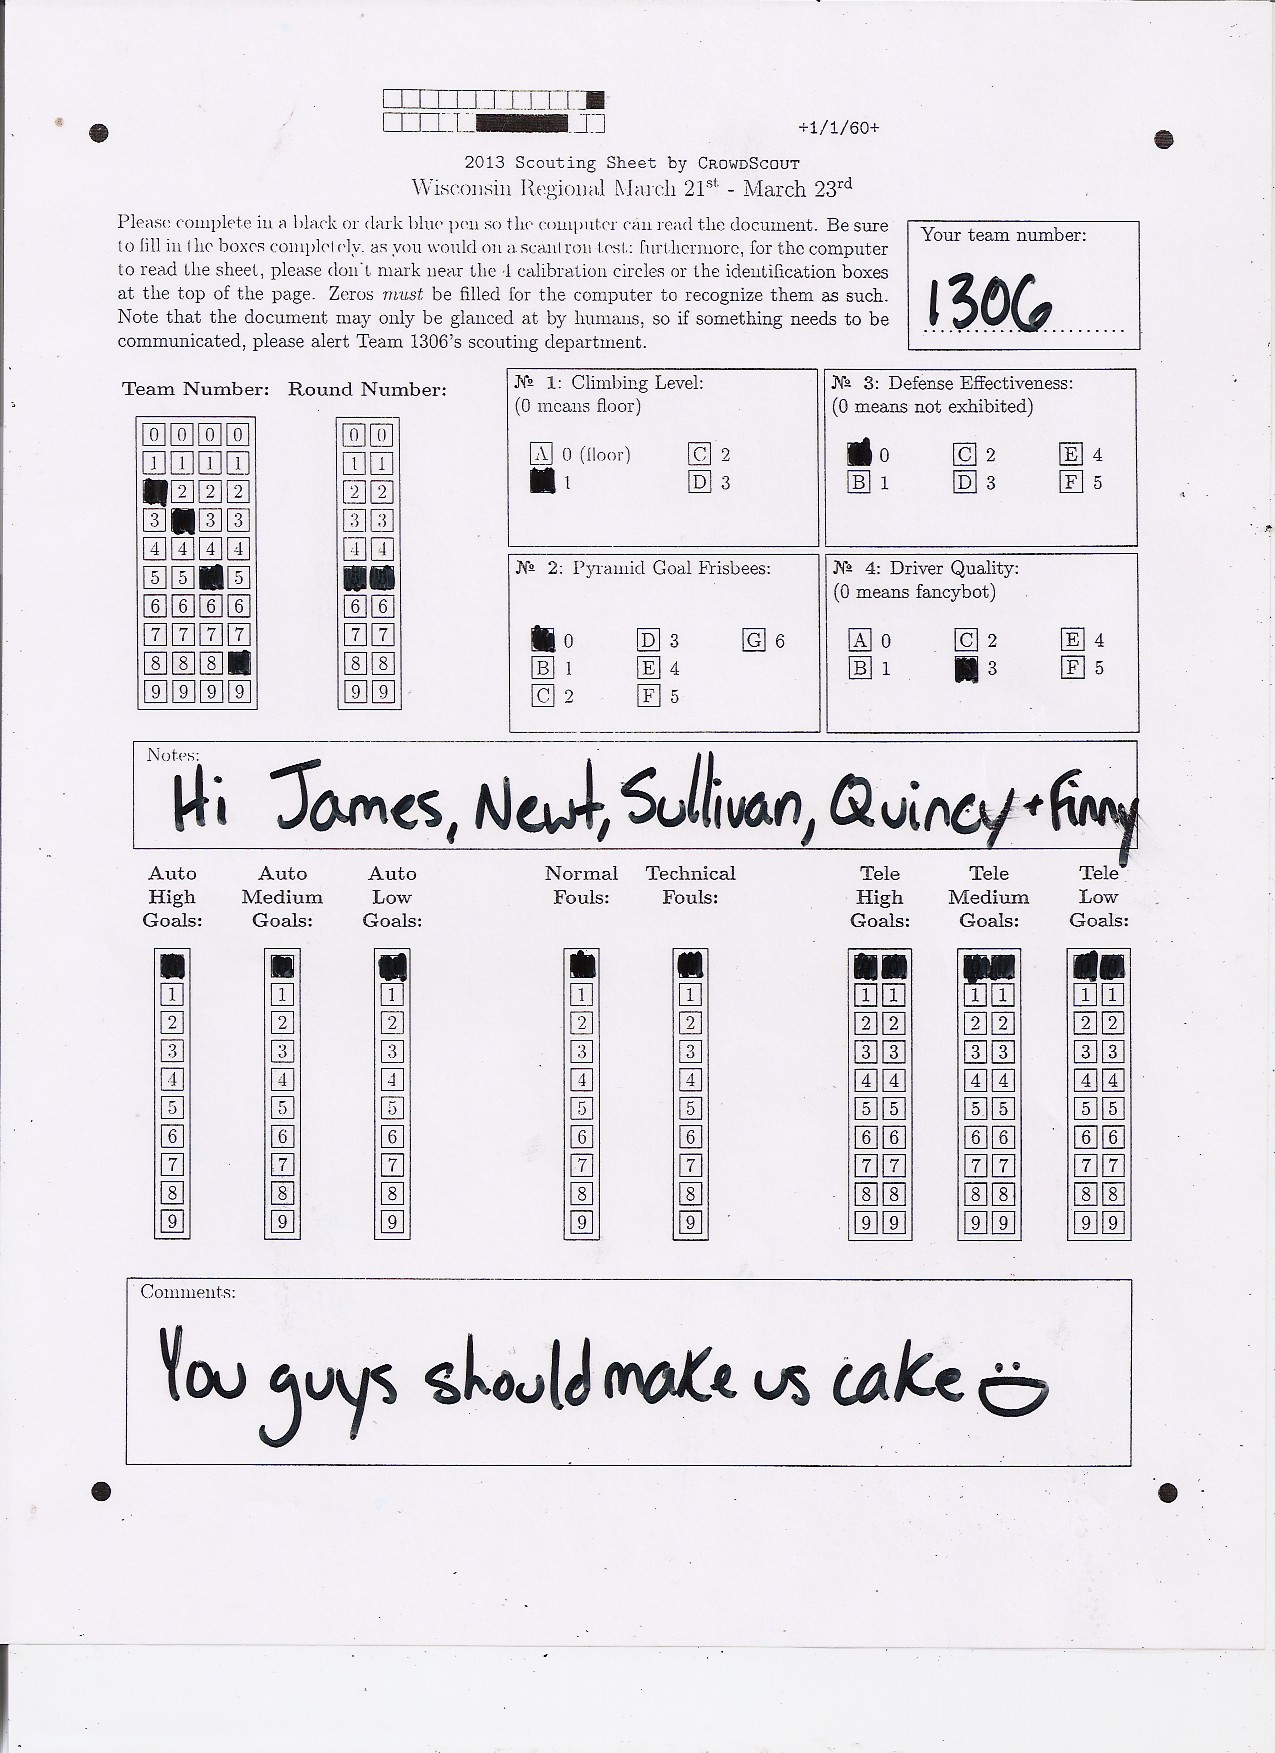 +1/1/60+
2013 Scouting Sheet by CROWDSCOUT
Wisconsin Regional March 21st - March 23rd
Please complete in a black or dark blue pen so the computer can read the document. Be sure
to fill in the boxes completely, as you would on a scantron test; furthermore, for the computer
to read the sheet, please don't mark near the 4 calibration circles or the identification boxes
at the top of the page. Zeros must be filled for the computer to recognize them as such.
Note that the document may only be glanced at by humans, so if something needs to be
communicated, please alert Team 1306's scouting department.
Your team number:
1306
Team Number: Round Number:
0 0 0 0 0 0
1 1 1 1 1 1
2 2 2 2 2
3 3 3 3 3
4 4 4 4 4 4
5 5 5
6 6 6 6 6 6
7 7 7 7 7 7
8 8 8 8 8
9 9 9 9 9 9
№ 1: Climbing Level:
(0 means floor)
A 0 (floor) C 2
1 D 3
№ 3: Defense Effectiveness:
(0 means not exhibited)
0 C 2 E 4
B 1 D 3 F 5
№ 2: Pyramid Goal Frisbees:
0 D 3 G 6
B 1 E 4
C 2 F 5
№ 4: Driver Quality:
(0 means fancybot)
A 0 C 2 E 4
B 1 3 F 5
Notes:
Hi James, Newt, Sullivan, Quincy + Finny
Auto Auto Auto Normal Technical Tele Tele Tele
High Medium Low Fouls: Fouls: High Medium Low
Goals: Goals: Goals: Goals: Goals: Goals:
1 1 1 1 1 1 1 1 1 1 1
2 2 2 2 2 2 2 2 2 2 2
3 3 3 3 3 3 3 3 3 3 3
4 4 4 4 4 4 4 4 4 4 4
5 5 5 5 5 5 5 5 5 5 5
6 6 6 6 6 6 6 6 6 6 6
7 7 7 7 7 7 7 7 7 7 7
8 8 8 8 8 8 8 8 8 8 8
9 9 9 9 9 9 9 9 9 9 9
Comments:
You guys should make us cake